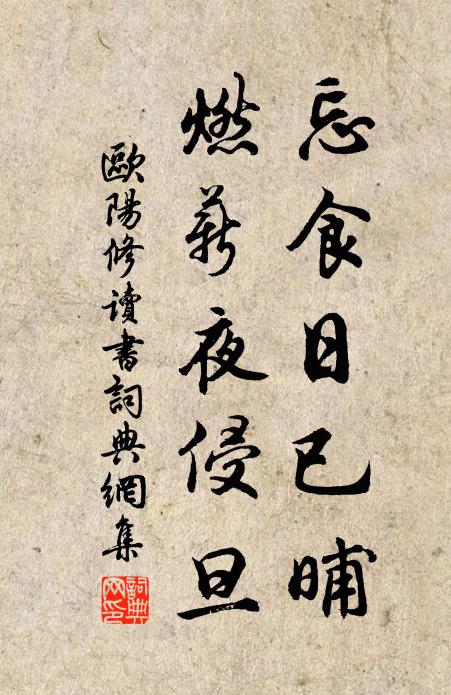 忘食日已晡
燃薪夜侵旦
歐陽修讀書詞典網集
詞典網印